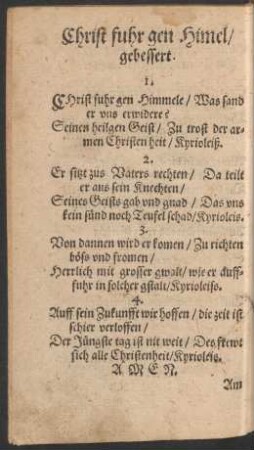 Christ fuhr gen Himel/
gebessert.
1.
CHrist fuhr gen Himmele / Was sand
er vns erwidere?
Seinen heilgen Geist / Zu trost der ar-
men Christen heit / Kyrioleiß.
2.
Er sitzt zus Vaters rechten / Da teilt
er aus sein Knechten /
Seines Geists gab vnd gnad / Das vns
kein sünd noch Teufel schad/Kyrioleis.
3.
Von dannen wird er komen / Zu richten
böss vnd fromen /
Herrlich mit grosser gwalt / wie er auff-
fuhr in solcher gstalt / Kyrioleiss.
4.
Auff sein Zukunfft wir hoffen / die zeit ist
schier verloffen /
Der Jüngste tag ist nit weit / Des frewt
sich alle Christenheit / Kyrioleiß.
A M E N.
Am